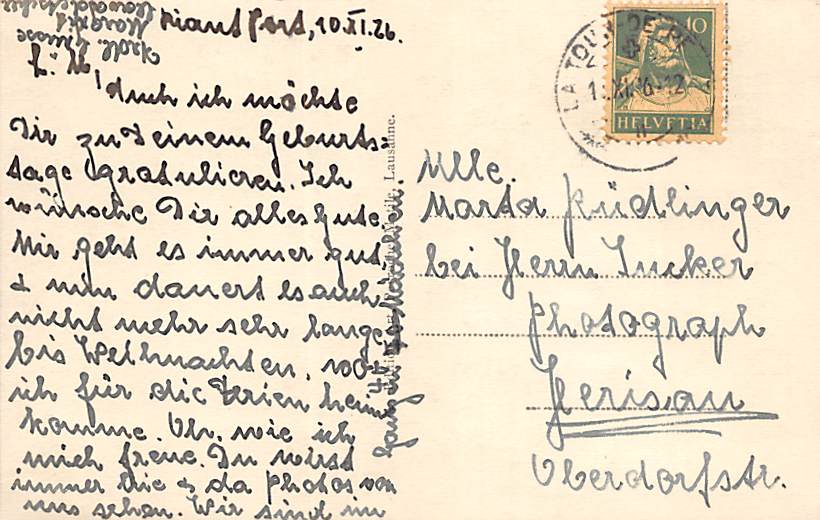 Mont fort, 10.XI.26.
L. M,
Auch ich möchte
Dir zu Deinem Geburts-
tage gratulieren. Ich
wünsche Dir alles Gute.
Mir geht es immer gut,
& nun dauert es auch
nicht mehr sehr lange
bis Weihnachten, wo
ich für die Ferien heim
komme. Oh, wie ich
mich freue. Du wirst
immer hie & da Photos von
uns sehen. Wir sind im
ganzen 30 Mädchen.
Frdl. Grüsse
Margrit
Lausanne.
LA TOUR-DE-PE
XI. 26-12
10
HELVETIA
Mlle.
Marta Rüdlinger
bei Herrn Tucker
Photograph
Herisau
Oberdorfstr.